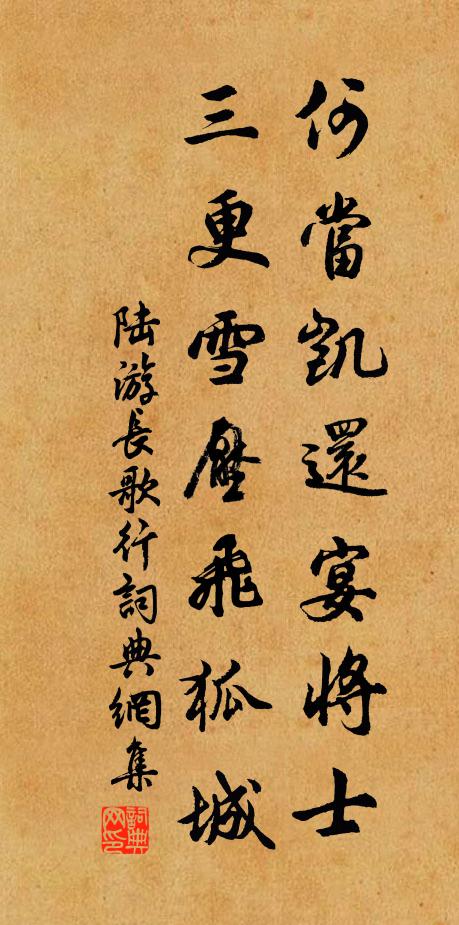 何當凱還宴將士
三更雪壓飛狐城
陸游長歌行詞典網集
詞典網印